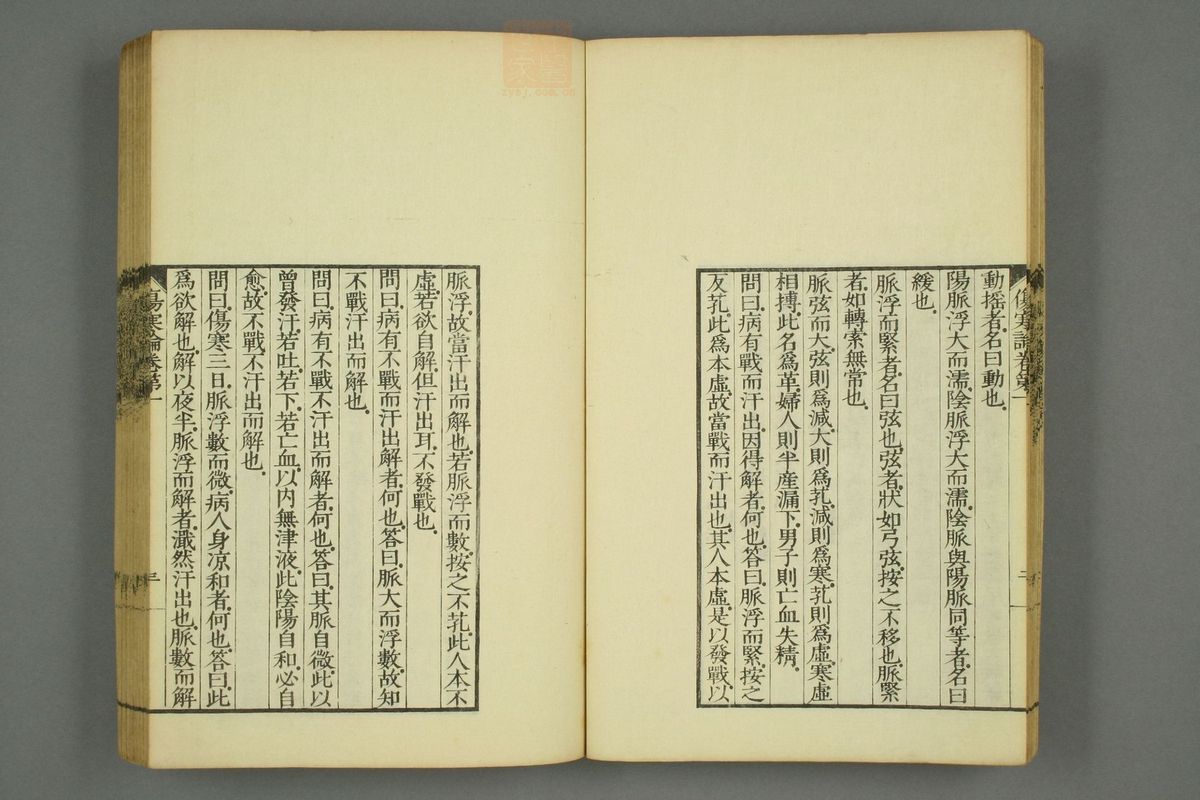 動搖者。名曰動也。
陽脈浮大而濡。陰脈浮大而濡。陰脈與陽脈同等者。名曰
緩也。
脈浮而緊者。名曰弦也。弦者。狀如弓弦。按之不移也。脈緊
者。如轉索無常也。
脈弦而大。弦則爲減。大則爲芤。減則爲寒。芤則爲虛。寒虛
相搏。此名爲革。婦人則半産漏下。男子則亡血失精。
問曰。病有戰而汗出。因得解者。何也。答曰。脈浮而緊。按之
反芤。此爲本虛。故當戰而汗出也。其人本虛。是以發戰。以
脈浮。故當汗出而解也。若脈浮而數。按之不芤。此人本不
虛。若欲自解。但汗出耳。不發戰也。
問曰。病有不戰而汗出解者。何也。答曰。脈大而浮數。故知
不戰汗出而解也。
問曰。病有不戰不汗出而解者。何也。答曰。其脈自微。此以
曾發汗。若吐。若下。若亡血。以內無津液。此陰陽自和。必自
愈。故不戰不汗出而解也。
問曰。傷寒三日。脈浮數而微。病人身涼和者。何也。答曰。此
爲欲解也。解以夜半。脈浮而解者。濈然汗出也。脈數而解
傷寒論卷第一
三
zysj.com.cn